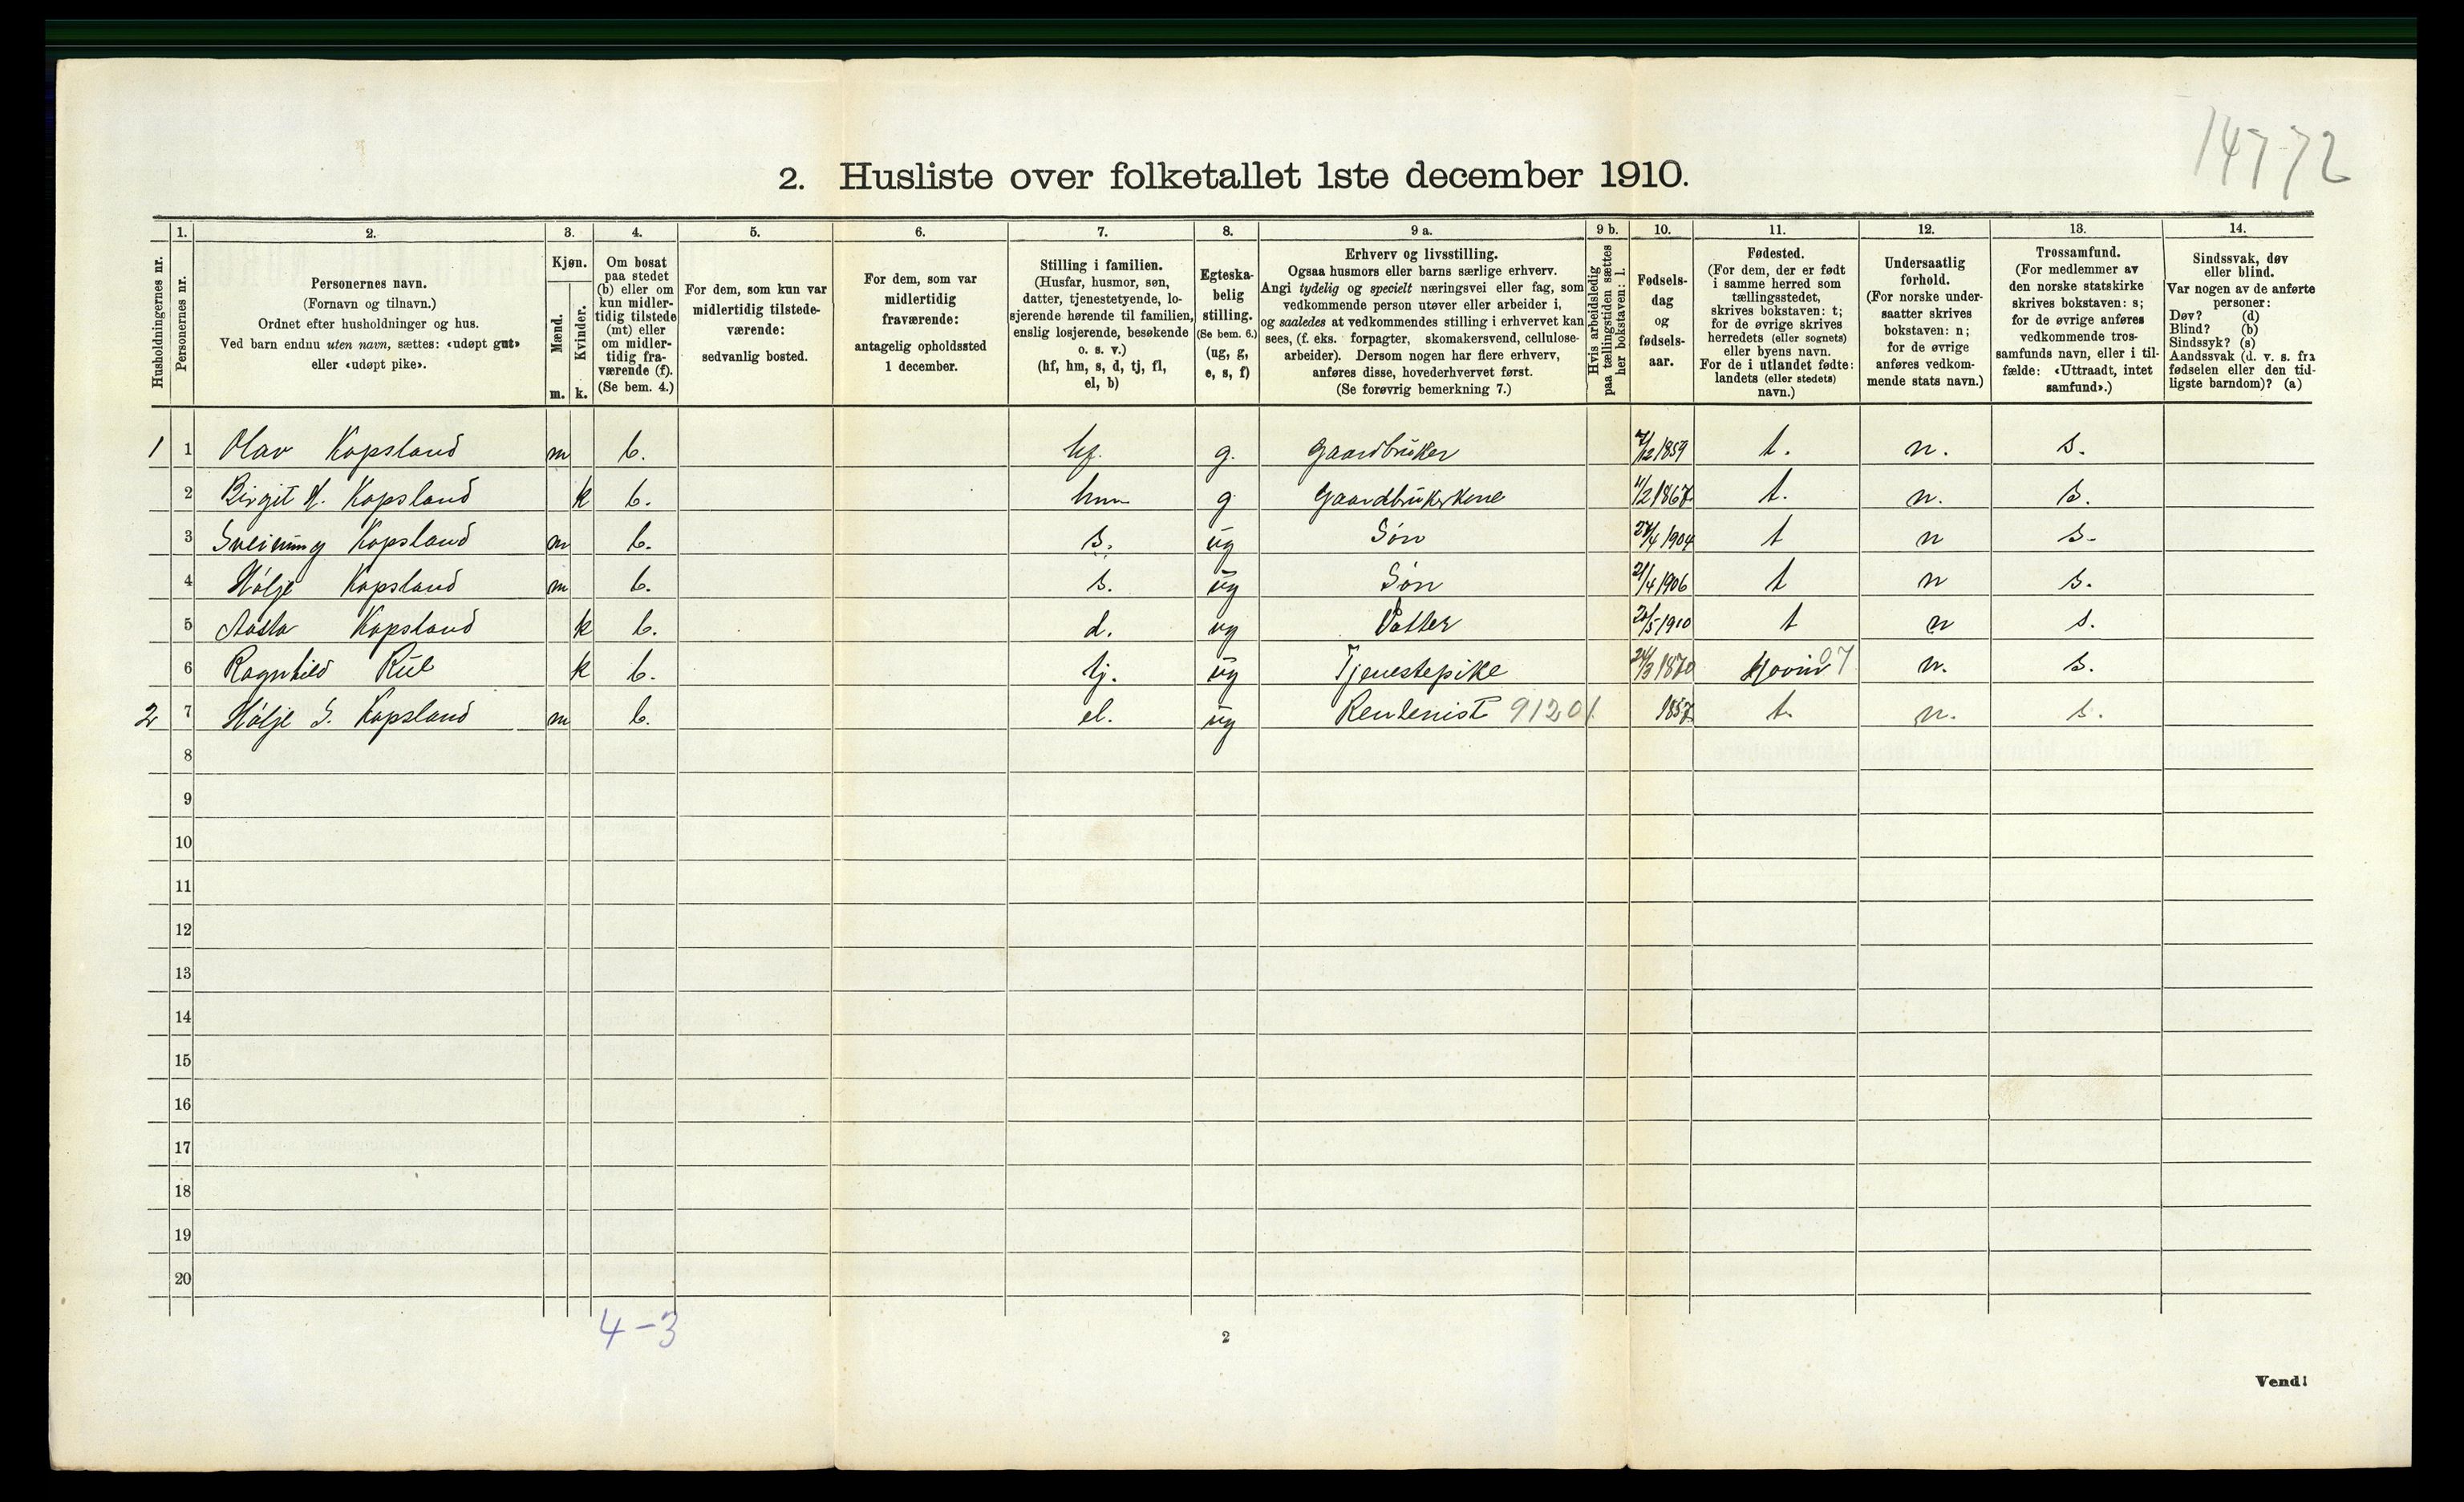 14772
2. Husliste over folketallet 1ste december 1910.
Husholdningernes nr.
1.
Personernes nr.
2.
Personernes navn.
(Fornavn og tilnavn.)
Ordnet efter husholdninger og hus.
Ved barn endnu uten navn, sættes: «udøpt gut»
eller «udøpt pike».
3.
Kjøn.
Mænd.
Kvinder.
m. k.
4.
Om bosat
paa stedet
(b) eller om
kun midler-
tidig tilstede
(mt) eller
om midler-
tidig fra-
værende (f).
(Se bem. 4.)
5.
For dem, som kun var
midlertidig tilstede-
værende:
sedvanlig bosted.
6.
For dem, som var
midlertidig
fraværende:
antagelig opholdssted
1 december.
7.
Stilling i familien.
(Husfar, husmor, søn,
datter, tjenestetyende, lo-
sjerende hørende til familien,
enslig losjerende, besøkende
o. s. v.)
(hf, hm, s, d, tj, fl,
el, b)
8.
Egteska-
belig
stilling.
(Se bem. 6.)
(ug, g,
e, s, f)
9 a.
Erhverv og livsstilling.
Ogsaa husmors eller barns særlige erhverv.
Angi tydelig og specielt næringsvei eller fag, som
vedkommende person utøver eller arbeider i,
og saaledes at vedkommendes stilling i erhvervet kan
sees, (f. eks. forpagter, skomakersvend, cellulose-
arbeider). Dersom nogen har flere erhverv,
anføres disse, hovederhvervet først.
(Se forøvrig bemerkning 7.)
9 b.
Hvis arbeidsledig
paa tællingstiden sættes
her bokstaven: l.
10.
Fødsels-
dag
og
fødsels-
aar.
11.
Fødested.
(For dem, der er født
i samme herred som
tællingsstedet,
skrives bokstaven: t;
for de øvrige skrives
herredets (eller sognets)
eller byens navn.
For de i utlandet fødte:
landets (eller stedets)
navn.)
12.
Undersaatlig
forhold.
(For norske under-
saatter skrives
bokstaven: n;
for de øvrige
anføres vedkom-
mende stats navn.)
13.
Trossamfund.
(For medlemmer av
den norske statskirke
skrives bokstaven: s;
for de øvrige anføres
vedkommende tros-
samfunds navn, eller i til-
fælde: «Uttraadt, intet
samfund».)
14.
Sindssvak, døv
eller blind.
Var nogen av de anførte
personer:
Døv? (d)
Blind? (b)
Sindssyk? (s)
Aandssvak (d. v. s. fra
fødselen eller den tid-
ligste barndom)? (a)
1 1 Olav Kopsland m b. hf. g. Gaardbruker 7/12 1859 t. n. s.
2 Birgit H. Kopsland k b. hm g Gaardbrukerkone 11/2 1867 t. n. s.
3 Sveinung Kopsland m b. s. ug Søn 1904 t n s.
4 Hølje Kopsland m b. s. ug Søn 21/4 1906 t n s.
5 Aasta Kopsland k b. d. ug Datter 1910 t n s.
6 Ragnhild k b. tj. ug Tjenestepike 24/3 1870 Hovin 07 n. s.
2 7 Hølje S. Kopsland m b. el. ug Rentenist 9120 1857 t. n. s.
8
9
10
11
12
13
14
15
16
17
18
19
20
4-3
2
Vend!